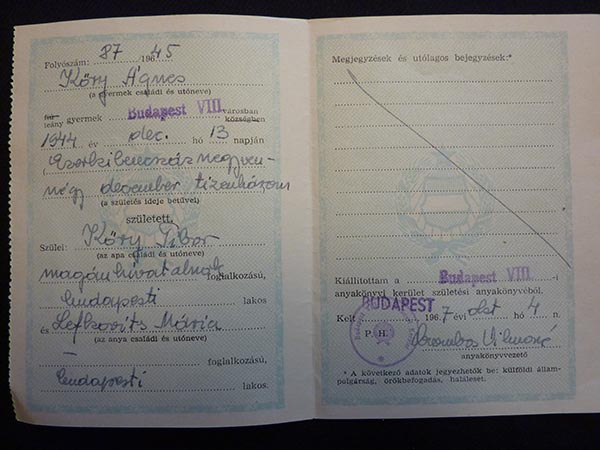 Folyószám: 87 /196 45
Kőry Ágnes
(a gyermek családi és utóneve)
fiú
leány gyermek Budapest VIII. városban
községben
1944 év dec. hó 13 napján
(Ezerkilencszáznegyven-
négy december tizenhárom
(a születés ideje betűvel)
született.
Szülei: Kőry Tibor
(az apa családi és utóneve)
magánhivatalnok foglalkozású,
budapesti lakos
és Lefkovits Mária
(az anya családi és utóneve)
— foglalkozású,
budapesti lakos.
Megjegyzések és utólagos bejegyzések:*
Kiállítottam a Budapest VIII. -i
anyakönyvi kerület születési anyakönyvéből.
BUDAPEST
Kelt 1967 évi okt hó 4 n.
P. H. Vilmosné
anyakönyvvezető
* A következő adatok jegyezhetők be: külföldi állam-
polgárság, örökbefogadás, haláleset.